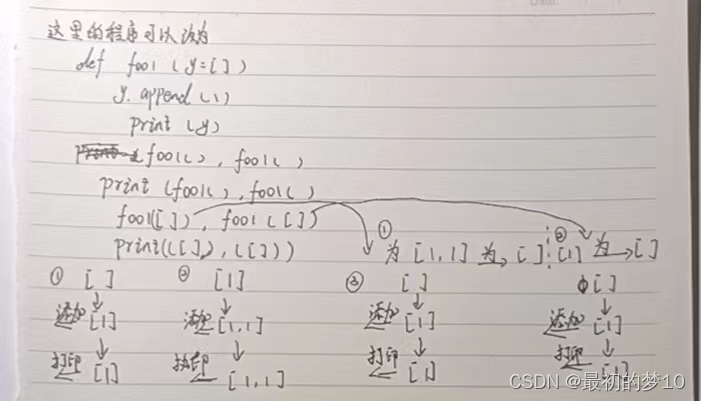 这里的程序可以改为
def foo1(y=[])
y.append(1)
print(y)
foo1(), foo1()
print(foo1(), foo1()
foo1([]), foo1([])
print(([]), ([]))
① 为 [1,1] 为→ [] ② [1] 为→[]
① [] ② [1] ③ [] ④ []
添加 [1] 添加 [1,1] 添加 [1] 添加 [1]
打印 [1] 打印 [1,1] 打印 [1] 打印 [1]
CSDN @最初的梦10